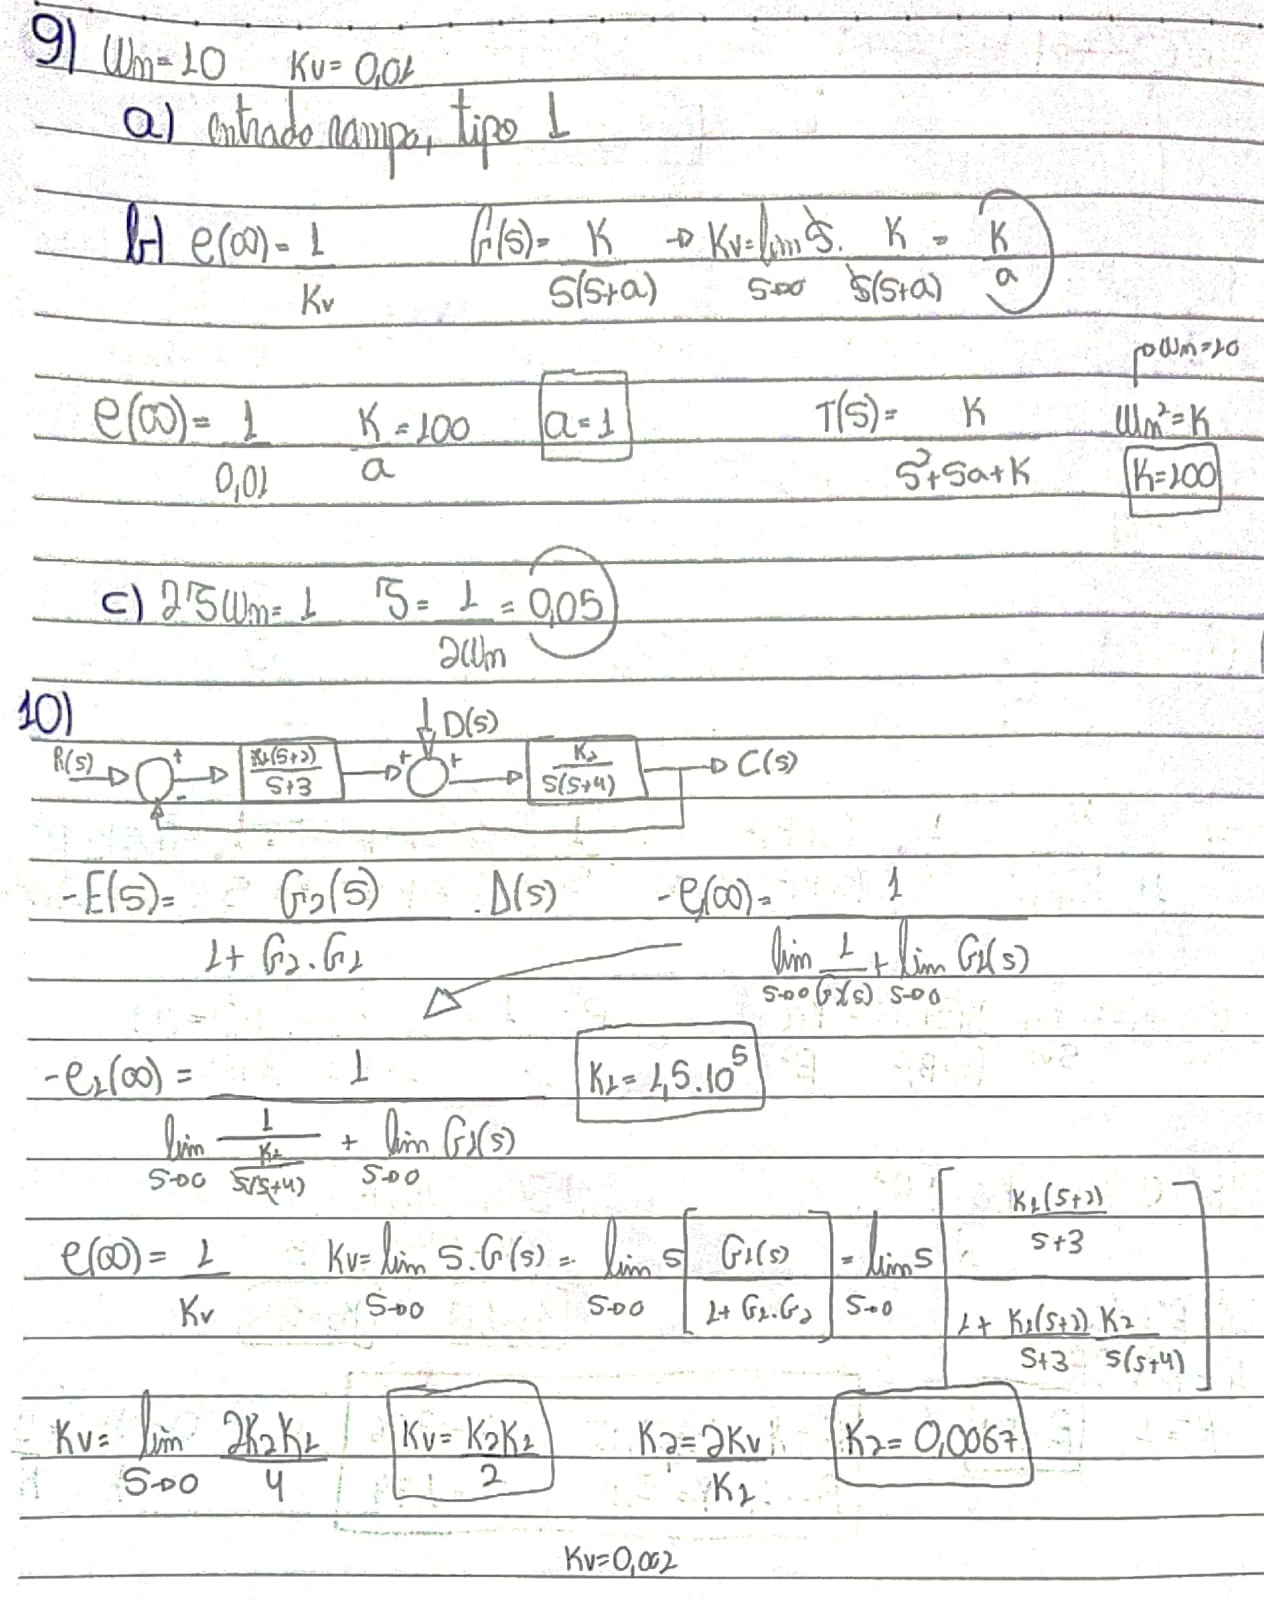 9) Wn=10 Kv=0,01
a) entrada rampa, tipo 1
b) e(∞)= 1/Kv G(s)= K/S(S+a) → Kv=lim S→0 S. K/S(S+a) = K/a
→Wn=10
e(∞)= 1/0,01 K/a =100 a=1 T(S)= K/S²+Sa+K Wn²=K K=100
c) 2ζWn=1 ζ= 1/2Wn = 0,05
10)
D(s)
R(s) + - K1(S+2)/S+3 + + K2/S(S+4) C(s)
-E(S)= G2(S)/1+G2.G1 .D(s) -e1(∞)= 1/lim S→0 1/G2(s) + lim S→0 G1(s)
-e1(∞) = 1/lim S→0 1/K2/S(S+4) + lim S→0 G1(s) K1=1,5.10⁵
e(∞)= 1/Kv Kv=lim S→0 S.G(s)= lim S→0 S[G1(s)/1+G1.G2] = lim S→0 S[K1(S+2)/S+3/1+K1(S+2)/S+3 K2/S(S+4)]
Kv= lim S→0 2K2K1/4 Kv=K2K1/2 K2=2Kv/K1 K2=0,0067
Kv=0,002